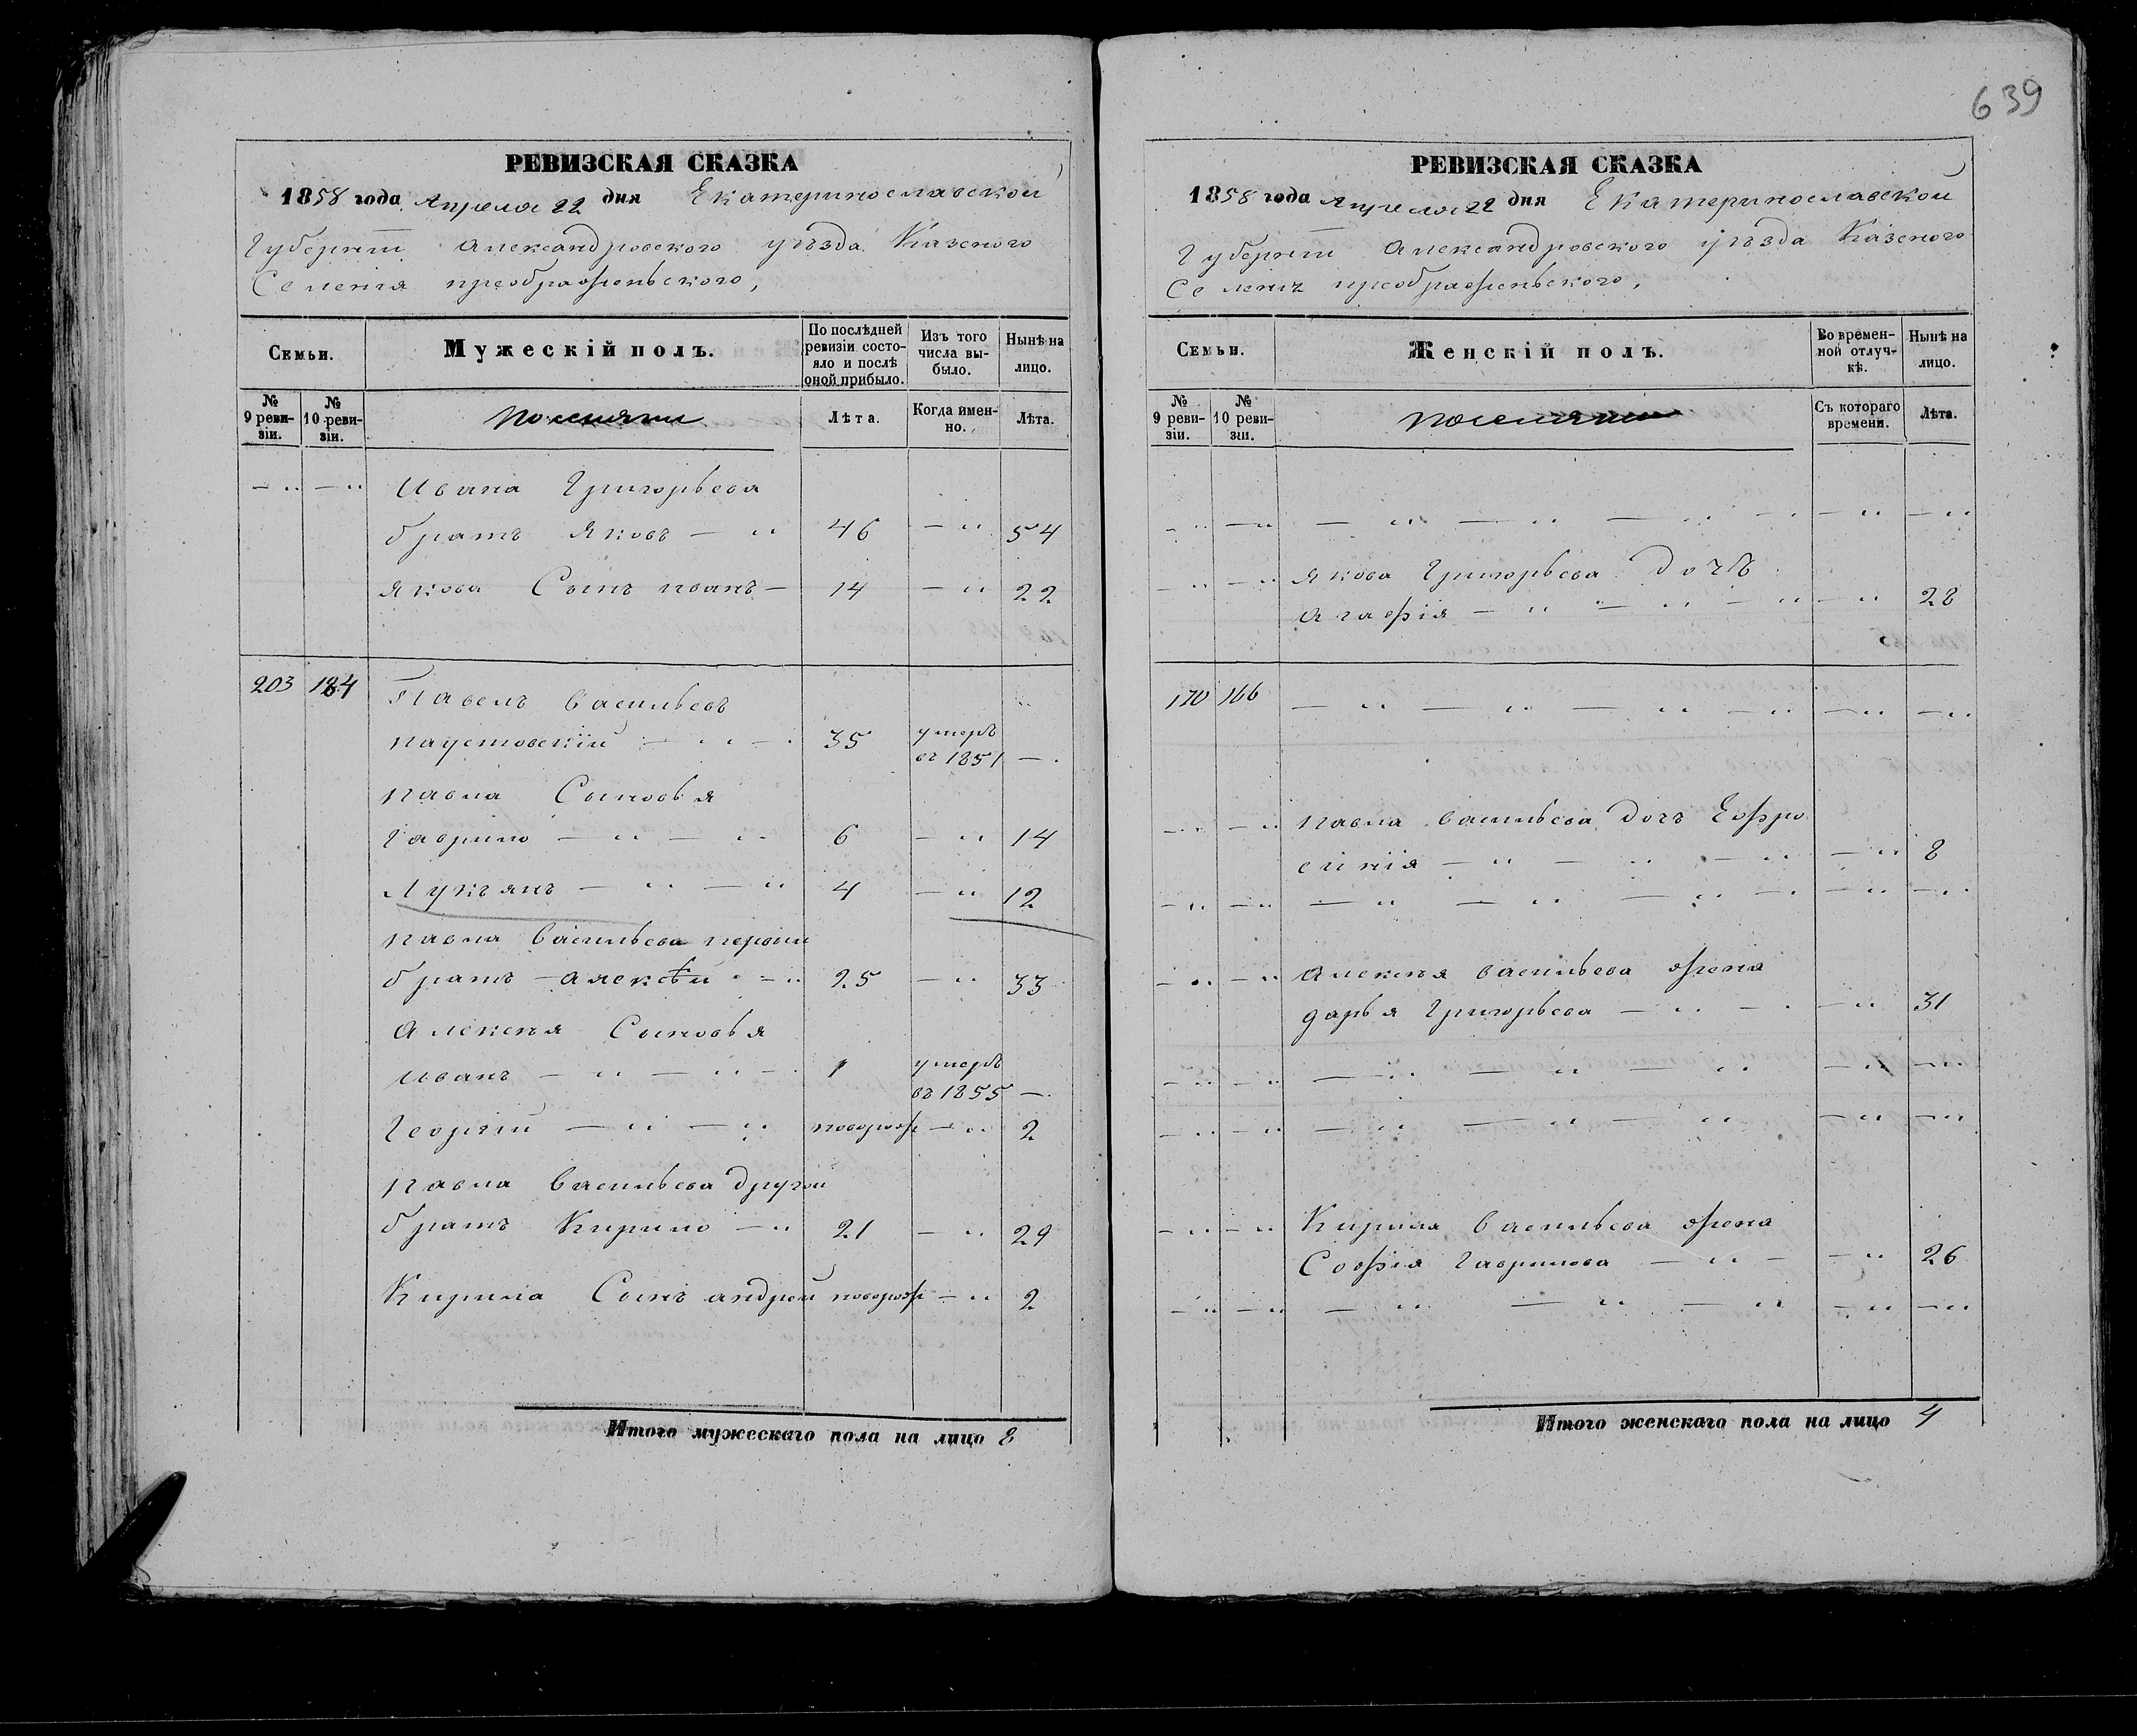 639
РЕВИЗСКАЯ СКАЗКА
1858 года Апреля 22 дня Екатеринославской
Губернiи Александровского уѣзда Казеного
Селенiя преображеньского,
Семьи.
Мужескій полъ.
По послѣдней ревизіи состояло и послѣ оной прибыло.
Изъ того числа выбыло.
Нынѣ на лицо.
№ 9 ревизіи.
№ 10 ревизіи.
поселяни
Лѣта.
Когда именно.
Лѣта.
Ивана Григорьева
братъ Яковъ 46 54
Якова Сынъ иванъ 14 22
203 184 Павелъ Васильевъ
паустовскiй 35 умеръ въ 1851
павла Сыновья
Гаврило 6 14
Лукъянъ 4 12
павла Васильева первый
братъ Алексѣй 25 33
Алексея Сыновья
Иванъ 1 умеръ въ 1855
Георгiй новорож 2
павла Васильева другой
братъ Кирило 21 29
Кирила Сынъ андрей новорож 2
Итого мужескаго пола на лицо 8
РЕВИЗСКАЯ СКАЗКА
1858 года Апреля 22 дня Екатеринославской
Губернiи Александровского уѣзда Казеного
Селенiя преображеньского,
Семьи.
Женскій полъ.
Во временной отлучкѣ.
Нынѣ на лицо.
№ 9 ревизіи.
№ 10 ревизіи.
поселяни
Съ котораго времени.
Лѣта.
Якова Григорьева дочь
Агафiя 28
170 166
павла Васильева дочъ Ефро
синiя 8
Алексея Васильева жена
дарья Григорьева 31
Кирила Васильева жена
Софiя Гаврилова 26
Итого женскаго пола на лицо 4